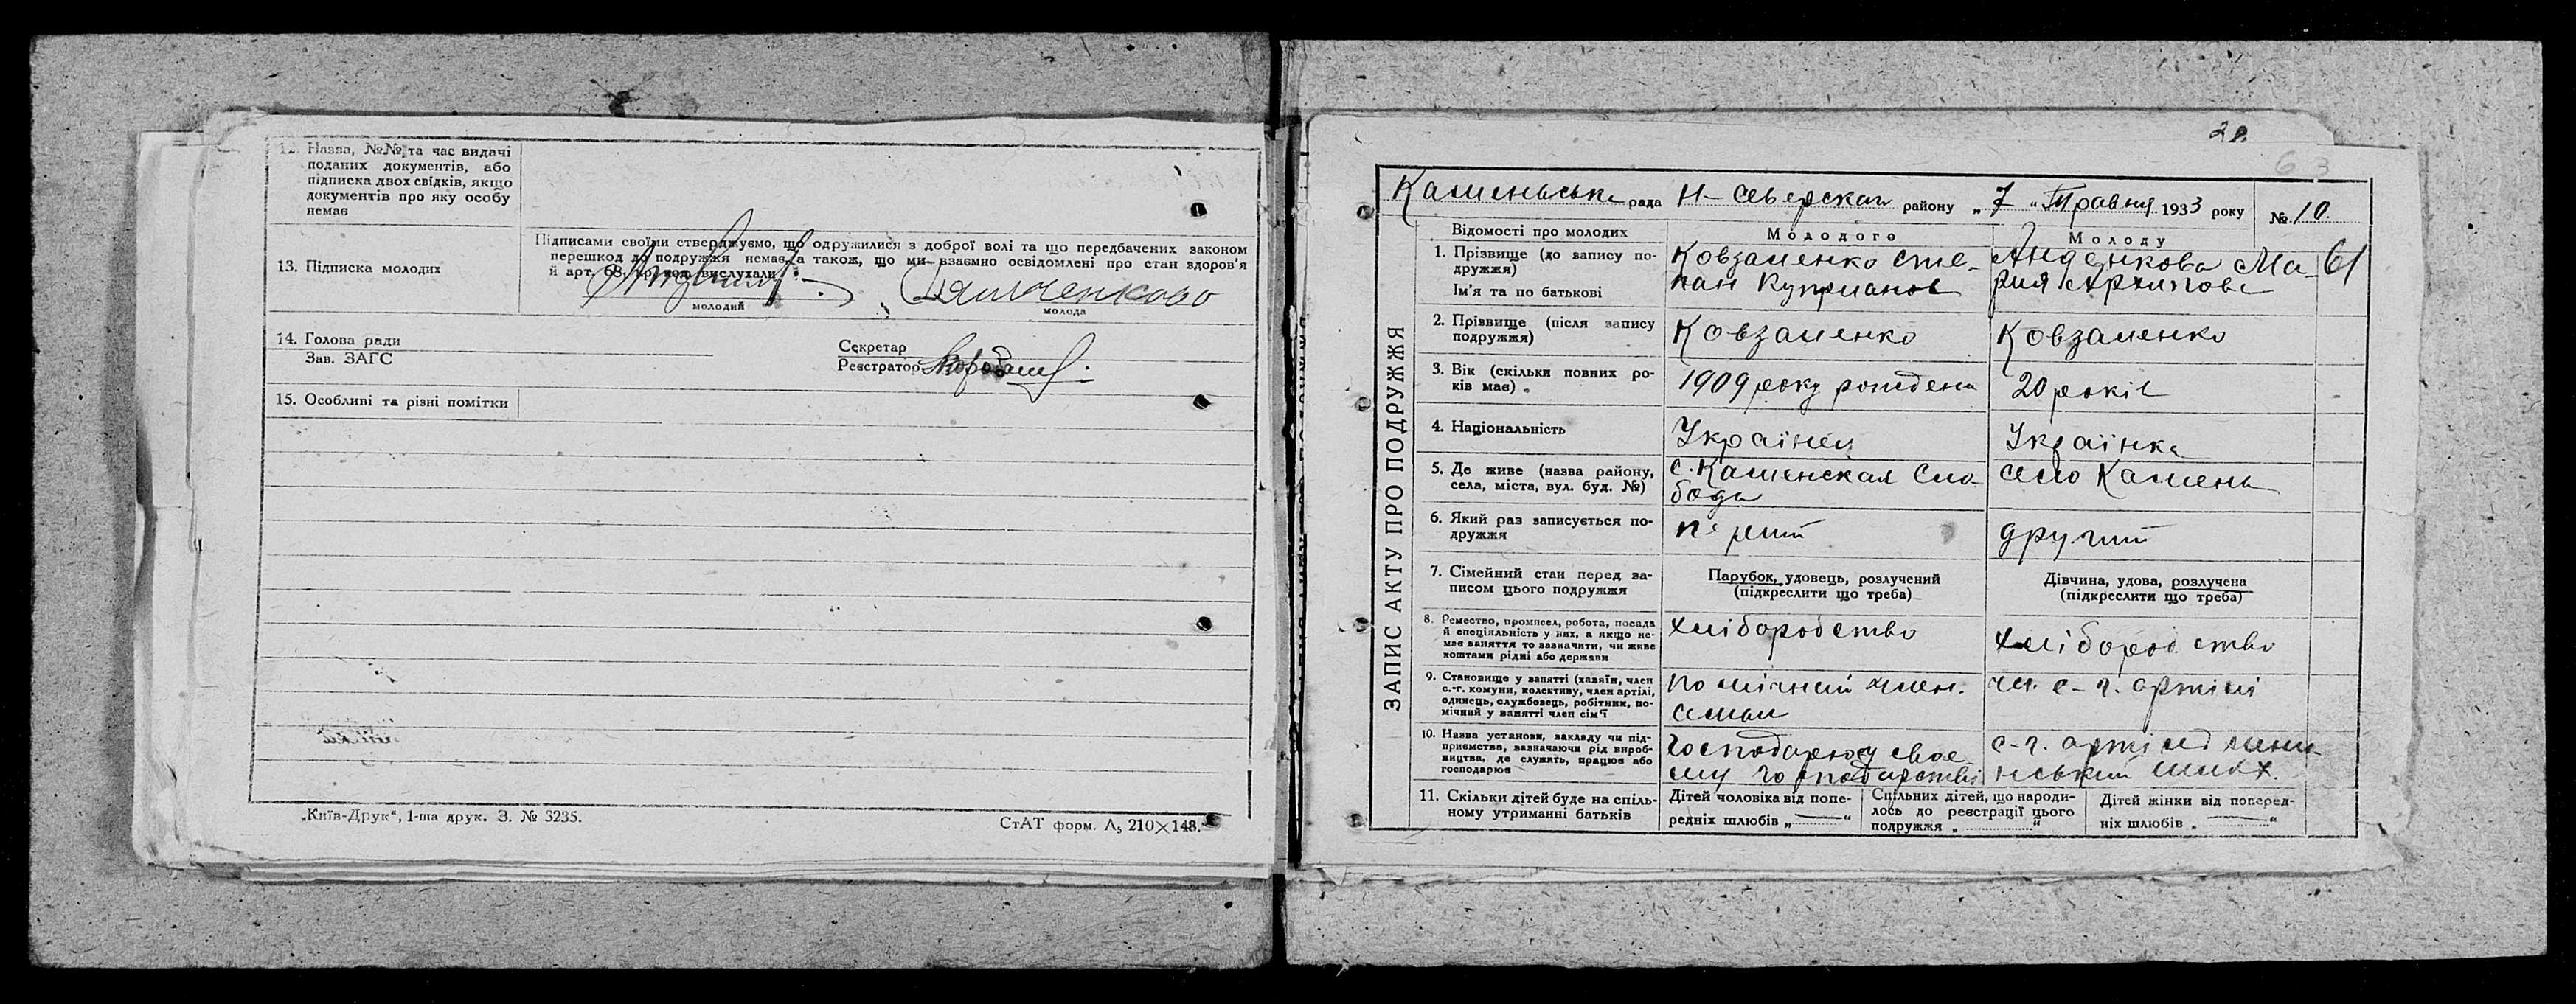 12. Назва, №№ та час видачі
поданих документів, або
підписка двох свідків, якщо
документів про яку особу
немає
13. Підписка молодих
Підписами своїми стверджуємо, що одружилися з доброї волі та що передбачених законом
перешкод до подружжя немає, а також, що ми взаємно освідомлені про стан здоров'я
й арт. 68, вислухали
молодий
молода
14. Голова ради
Зав. ЗАГС
Секретар
Реєстратор
15. Особливі та різні помітки
„Київ-Друк“, 1-ша друк. З. № 3235.
СтАТ форм. А₅ 210×148.
63
ЗАПИС АКТУ ПРО ПОДРУЖЖЯ
Каменьська рада Н-Северская району „7“ Травня 1933 року
№ 10.
Відомості про молодих
Молодого
Молоду
1. Прізвище (до запису по-
дружжя)
Ім'я та по батькові
Ковзаменко Сте-
пан Куприанов
Анденкова Ма-
рия Архипова
61
2. Прізвище (після запису
подружжя)
Ковзаменко
Ковзаменко
3. Вік (скільки повних ро-
ків має)
1909 року рождени
20 років
4. Національність
Українец
Українка
5. Де живе (назва району,
села, міста, вул. буд. №)
с. Каменская Сло-
бода
село Камень
6. Який раз записується по-
дружжя
перший
другий
7. Сімейний стан перед за-
писом цього подружжя
Парубок, удовець, розлучений
(підкреслити що треба)
Дівчина, удова, розлучена
(підкреслити що треба)
8. Ремество, промисел, робота, посада
й спеціяльність у них, а якщо не-
має заняття то зазначити, чи живе
коштами рідні або держави
хліборобство
хліборобство
9. Становище у занятті (хазяїн, член
с.-г. комуни, колективу, член артілі,
одинець, службовець, робітник, по-
мічний у занятті член сім'ї
помічний член.
семьи
чл. с-г. артілі
10. Назва установи, закладу чи під-
приємства, зазначаючи рід вироб-
ництва, де служить, працює або
господарює
Господарюе у свое-
му господарстві
с-г. артілі лени-
нський шлях.
11. Скільки дітей буде на спіль-
ному утриманні батьків
Дітей чоловіка від попе-
редніх шлюбів „—“
Спільних дітей, що народи-
лось до реєстрації цього
подружжя „ “
Дітей жінки від поперед-
ніх шлюбів „—“